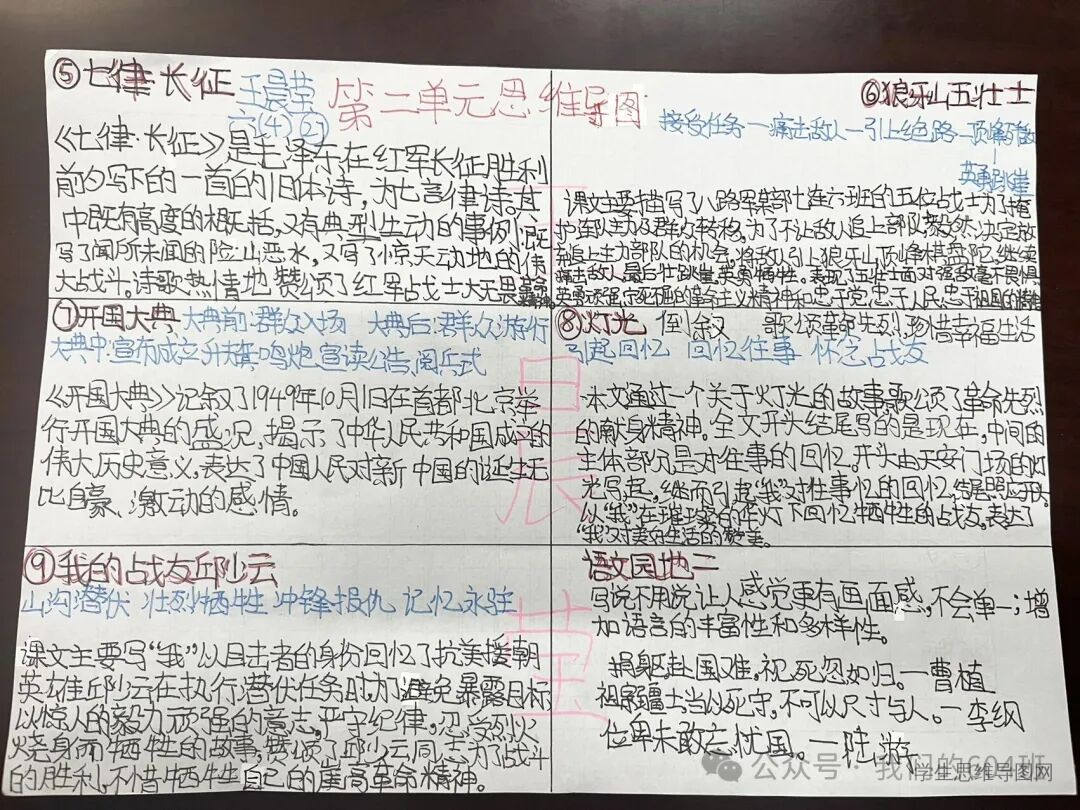 第二单元思维导图
王晨莹
六(4)②
⑤七律·长征
《七律·长征》是毛泽东在红军长征胜利
前夕写下的一首的旧体诗，为七言律诗。其
中既有高度的概括，又有典型生动的事例，既
写了闻所未闻的险山恶水，又写了惊天动地的伟
大战斗。诗歌热情地赞颂了红军战士大无畏
⑥狼牙山五壮士
接受任务一痛击敌人一引上绝路一顶峰歼敌
英勇跳崖
课文主要描写了八路军某部七连六班的五位战士为了掩
护连队主力及群众转移，为了不让敌人追上部队，毅然决定放
弃追上主力部队的机会，将敌人引上狼牙山顶峰棋盘陀，继续
痛击敌人，最后壮烈跳崖，英勇牺牲。表现了五壮士面对强敌毫不畏惧
英勇顽强，宁死不屈的革命主义精神和忠于党，忠于人民，忠于祖国的精神
⑦开国大典 大典前：群众入场 大典后：群众游行
大典中：宣布成立 升旗 鸣炮 宣读公告，阅兵式
《开国大典》记叙了1949年10月1日在首都北京举
行开国大典的盛况，揭示了中华人民共和国成立的
伟大历史意义。表达了中国人民对新中国的诞生无
比自豪、激动的感情。
⑧灯光 倒叙 歌颂革命先烈，珍惜幸福生活
引起回忆 回忆往事 怀念战友
本文通过一个关于灯光的故事，歌颂了革命先烈
的献身精神。全文开头结尾写的是现在，中间的
主体部分是对往事的回忆。开头由天安门场的灯
光写起，继而引起“我”对往事忆的回忆，结尾照应开头，
以“我”在璀璨的华灯下回忆牺牲的战友，表达了
“我”对美好生活的赞美。
⑨我的战友邱少云
山沟潜伏 壮烈牺牲 冲锋报仇 记忆永驻
课文主要写“我”以目击者的身份回忆了抗美援朝
英雄邱少云在执行潜伏任务时，为避免暴露目标
以惊人的毅力，顽强的意志，严守纪律，忍受烈火
烧身而牺牲的故事，赞颂了邱少云同志为了战斗
的胜利，不惜牺牲自己的崖高革命精神。
语文园地二
写说不用说让人感觉更有画面感，不会单一；增
加语言的丰富性和多样性。
捐躯赴国难，视死忽如归。一曹植
祖宗疆土当以死守，不可以尺寸与人。一李纲
位卑未敢忘忧国。一陆游
王晨莹
公众号·我们的604班
学生思维导图网